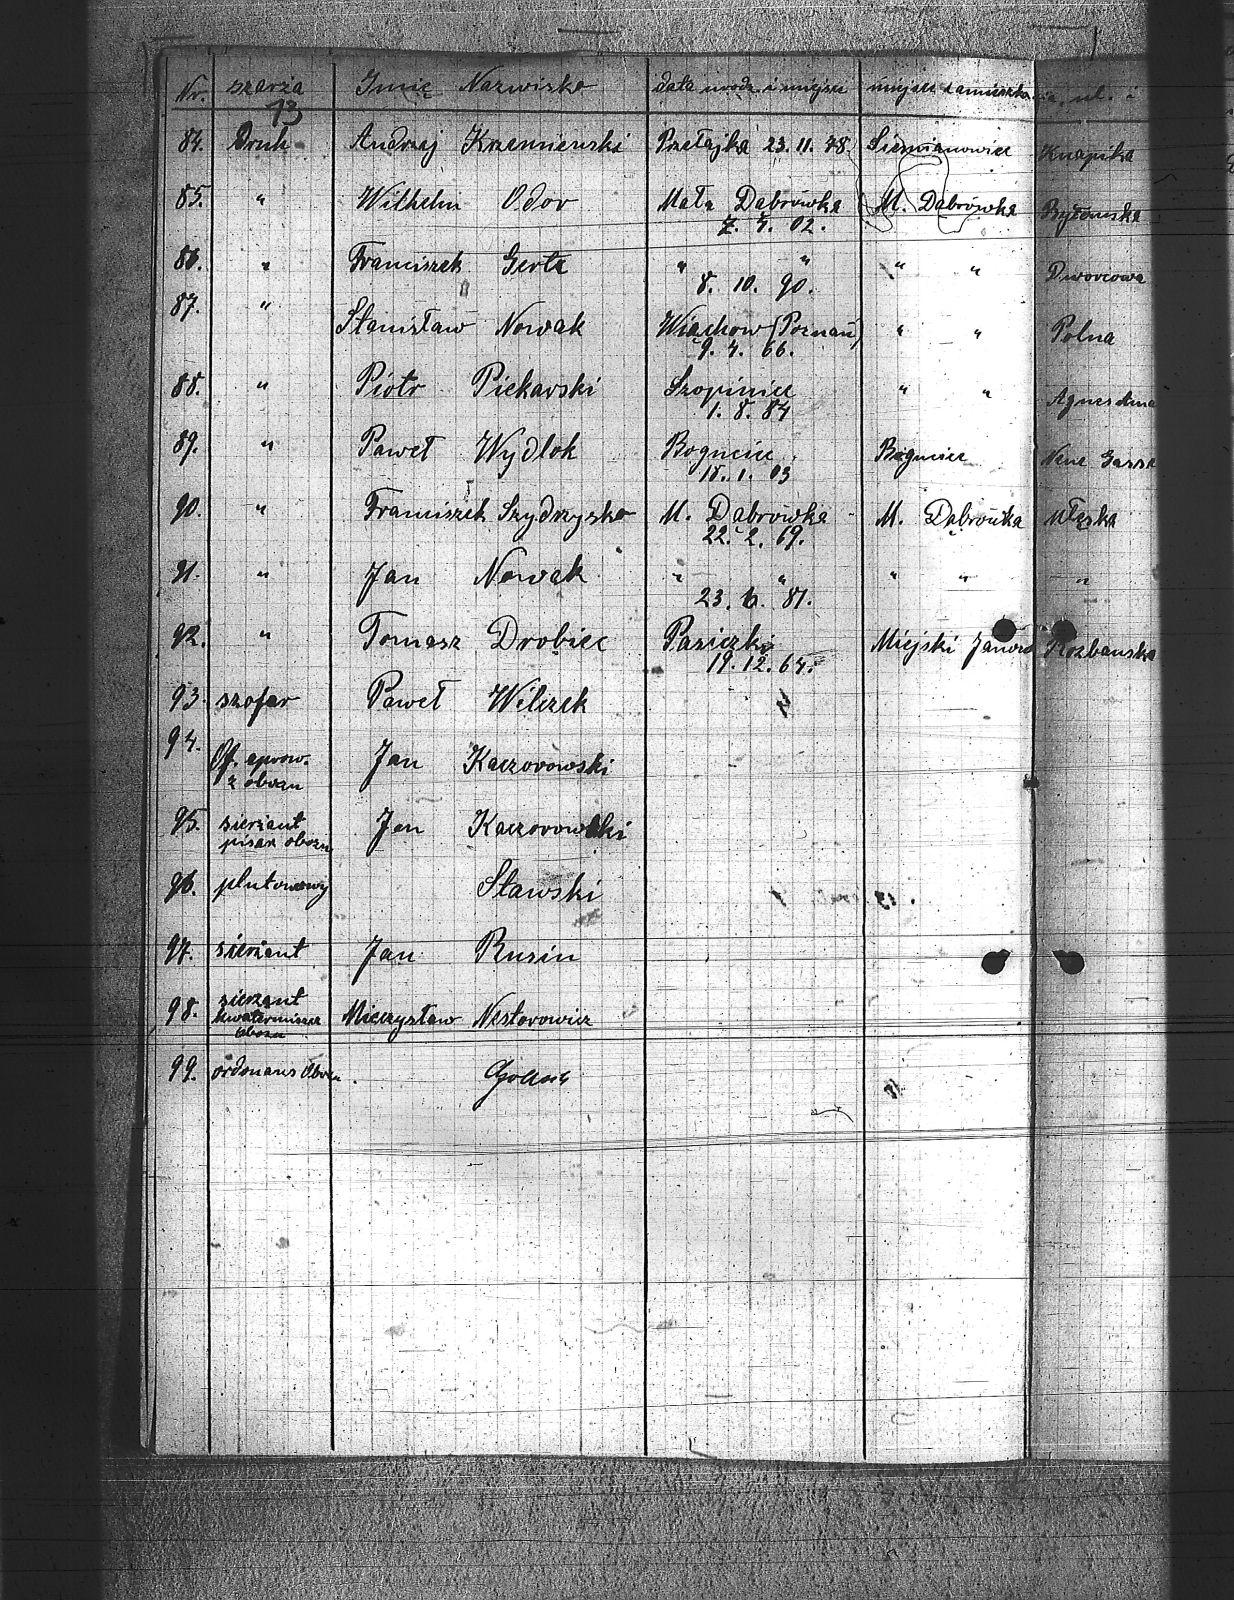 Nr. szarża Imię Nazwisko data urodz. i miejsc. miejsce zamieszka nia, ul. i
13
84. Druh Andrzej Krzemienski Przełajka 23. 11. 78. Siemianowice Knapika
85. " Wilhelm Odor Mała Dąbrówka M. Dąbrówka Bytomska
7. 4. 02.
86. " Franciszek Gerta " " " " Dworcowa
8. 10. 90.
87. " Stanisław Nowak Wiąchow (Poznań) " " Polna
9. 4. 66.
88. " Piotr Piekarski Szopinice " " Agnes
1. 8. 84
89. " Paweł Wydlok Bogucice Bogucice
15. 1. 03
90. " Franciszek Szydrzysko M. Dąbrowka M. Dąbrówka
22. 2. 69.
91. " Jan Nowak " " " " "
23. 6. 81.
92. " Tomasz Drobiec Pasieczki Miejski Janow
19. 12. 64.
93. szofer Paweł Wilczek
94. Of. aprow. Jan Kaczorowski
z obozu
95. sierżant Jan Kaczorowski
pisarz obozu
96. plutonowy Sławski
97. sierżant Jan Rusin
98. sierżant Mieczysław Nestorowicz
kwatermistrz
obozu
99. ordonans obozu